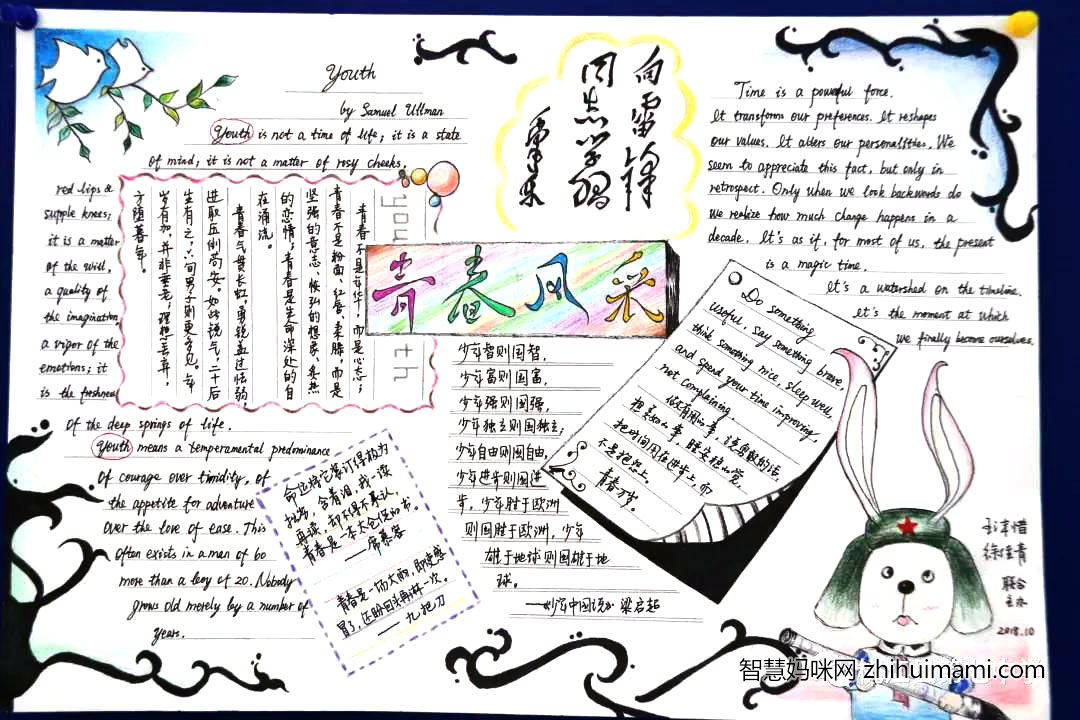 Youth
by Samuel Ullman
Youth is not a time of life; it is a state
of mind; it is not a matter of rosy cheeks,
red lips &
supple knees;
it is a matter
of the will,
a quality of
the imagination
a vigor of the
emotions; it
is the freshness
of the deep springs of life.
Youth means a temperamental predominance
Of courage over timidity, of
the appetite for adventure
over the love of ease. This
often exists in a man of 60
more than a boy of 20. Nobody
grows old merely by a number of
years.
youth
青春不是年华,而是心态;
青春不是粉面、红唇、柔膝,而是
坚强的意志、恢弘的想象、炙热
的恋情;青春是生命深处的自
在涌流。
青春气贯长虹,勇锐盖过怯弱,
进取压倒苟安。如此锐气,二十后
生有之,六旬男子则更多见。年
岁有加,并非垂老;理想丢弃,
方堕暮年。
向雷锋
同志学习
青春风采
少年智则国智,
少年富则国富,
少年强则国强,
少年独立则国独立;
少年自由则国自由,
少年进步则国进
步,少年胜于欧洲
则国胜于欧洲,少年
雄于地球则国雄于地
球。
——《少年中国说》梁启超
命运将它装订得极为
拙劣,含着泪,我一读
再读,却不得不承认,
青春是一本太仓促的书。
——席慕容
青春是一场大雨,即使感
冒了,还盼回头再淋一次。
——九把刀
Time is a powerful force.
It transforms our preferences. It reshapes
our values. It alters our personalities. We
seem to appreciate this fact, but only in
retrospect. Only when we look backwards do
we realize how much change happens in a
decade. It's as if, for most of us, the present
is a magic time.
It's a watershed on the timeline.
It's the moment at which
we finally become ourselves.
Do something
useful, say something brave,
think something nice, sleep well,
and spend your time improving,
not complaining.
做有用的事,说勇敢的话,
想美好的事,睡安稳的觉,
把时间用在进步上,而
不是抱怨上。
青春万岁。
联合
主办
2018.10
智慧妈咪网 zhihuimami.com